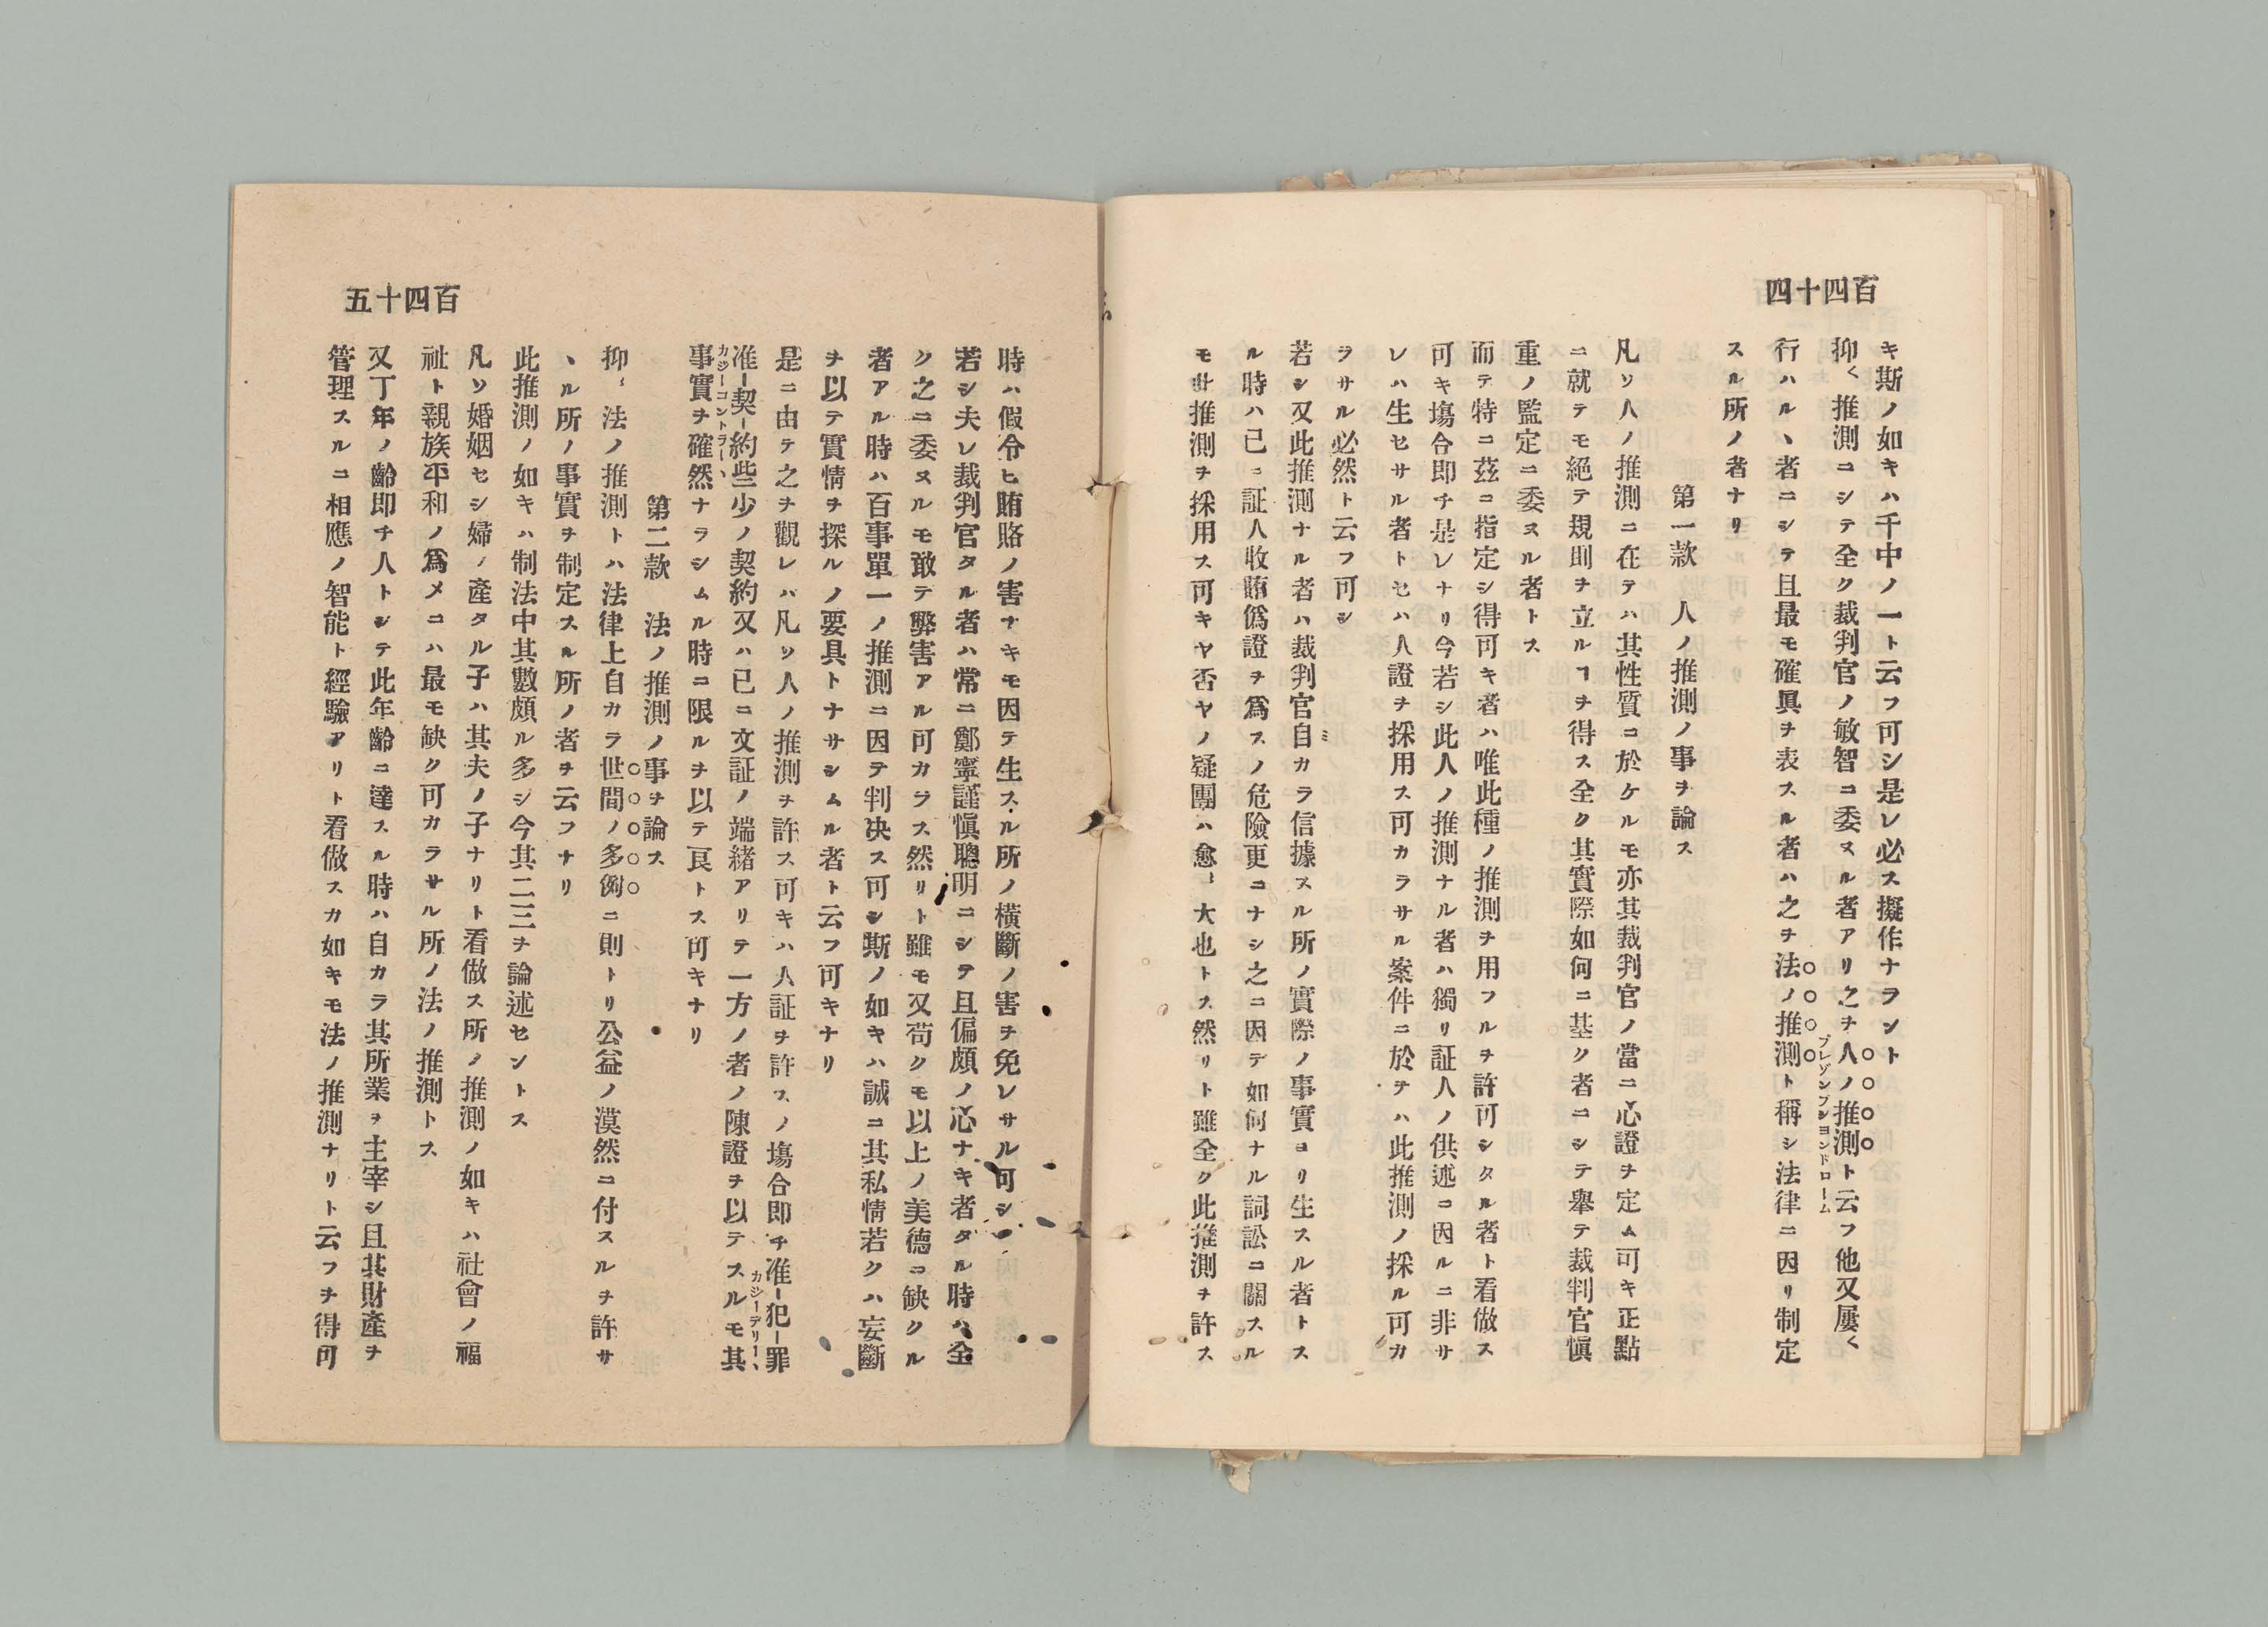 百四十四
キ斯ノ如キハ千中ノ一ト云フ可シ是レ必ス擬作ナラント
抑〱推測ニシテ全ク裁判官ノ敏智ニ委ヌル者アリ之ヲ人ノ推測ト云フ他又屢〱
プレゾンプションドローム
行ハルヽ者ニシテ且最モ確眞ヲ表スル者ハ之ヲ法ノ推測ト稱シ法律ニ因リ制定
スル所ノ者ナリ
第一款　人ノ推測ノ事ヲ論ス
凡ソ人ノ推測ニ在テハ其性質ニ於ケルモ亦其裁判官ノ當ニ心證ヲ定ム可キ正點
ニ就テモ絕テ規則ヲ立ルヿヲ得ス全ク其實際如何ニ基ク者ニシテ擧テ裁判官愼
重ノ監定ニ委ヌル者トス
而テ特ニ茲ニ指定シ得可キ者ハ唯此種ノ推測ヲ用フルヲ許可シタル者ト看做ス
可キ塲合即チ是レナリ今若シ此人ノ推測ナル者ハ獨リ証人ノ供述ニ因ルニ非サ
レハ生セサル者トセハ人證ヲ採用ス可カラサル案件ニ於テハ此推測ノ採ル可カ
ラサル必然ト云フ可シ
若シ又此推測ナル者ハ裁判官自カラ信據スル所ノ實際ノ事實ヨリ生スル者トス
ル時ハ已ニ証人收賄僞證ヲ爲スノ危險更ニナシ之ニ因テ如何ナル詞訟ニ關スル
モ此推測ヲ採用ス可キヤ否ヤノ疑團ハ愈〻大也トス然リト雖全ク此推測ヲ許ス
百四十五
時ハ假令ヒ賄賂ノ害ナキモ因テ生スル所ノ橫斷ノ害ヲ免レサル可シ
若シ夫レ裁判官タル者ハ常ニ鄭寧謹愼聰明ニシテ且偏頗ノ心ナキ者タル時ハ全
ク之ニ委ヌルモ敢テ弊害アル可カラス然リト雖モ又苟クモ以上ノ美德ニ缺クル
者アル時ハ百事單一ノ推測ニ因テ判决ス可シ斯ノ如キハ誠ニ其私情若クハ妄斷
ヲ以テ實情ヲ探ルノ要具トナサシムル者ト云フ可キナリ
是ニ由テ之ヲ觀レバ凡ソ人ノ推測ヲ許ス可キハ人証ヲ許スノ塲合即チ准犯罪
カジーデリー、
准契約些少ノ契約又ハ已ニ文証ノ端緖アリテ一方ノ者ノ陳證ヲ以テスルモ其
カジーコントラー、
事實ヲ確然ナラシムル時ニ限ルヲ以テ良トス可キナリ
第二款　法ノ推測ノ事ヲ論ス
抑〻法ノ推測トハ法律上自カラ世間ノ多例ニ則トリ公益ノ漠然ニ付スルヲ許サ
ヽル所ノ事實ヲ制定スル所ノ者ヲ云フナリ
此推測ノ如キハ制法中其數頗ル多シ今其二三ヲ論述セントス
凡ソ婚姻セシ婦ノ產タル子ハ其夫ノ子ナリト看做ス所ノ推測ノ如キハ社會ノ福
祉ト親族平和ノ爲メニハ最モ缺ク可カラサル所ノ法ノ推測トス
又丁年ノ齡即チ人トシテ此年齡ニ達スル時ハ自カラ其所業ヲ主宰シ且其財產ヲ
管理スルニ相應ノ智能ト經驗アリト看做スカ如キモ法ノ推測ナリト云フヲ得可